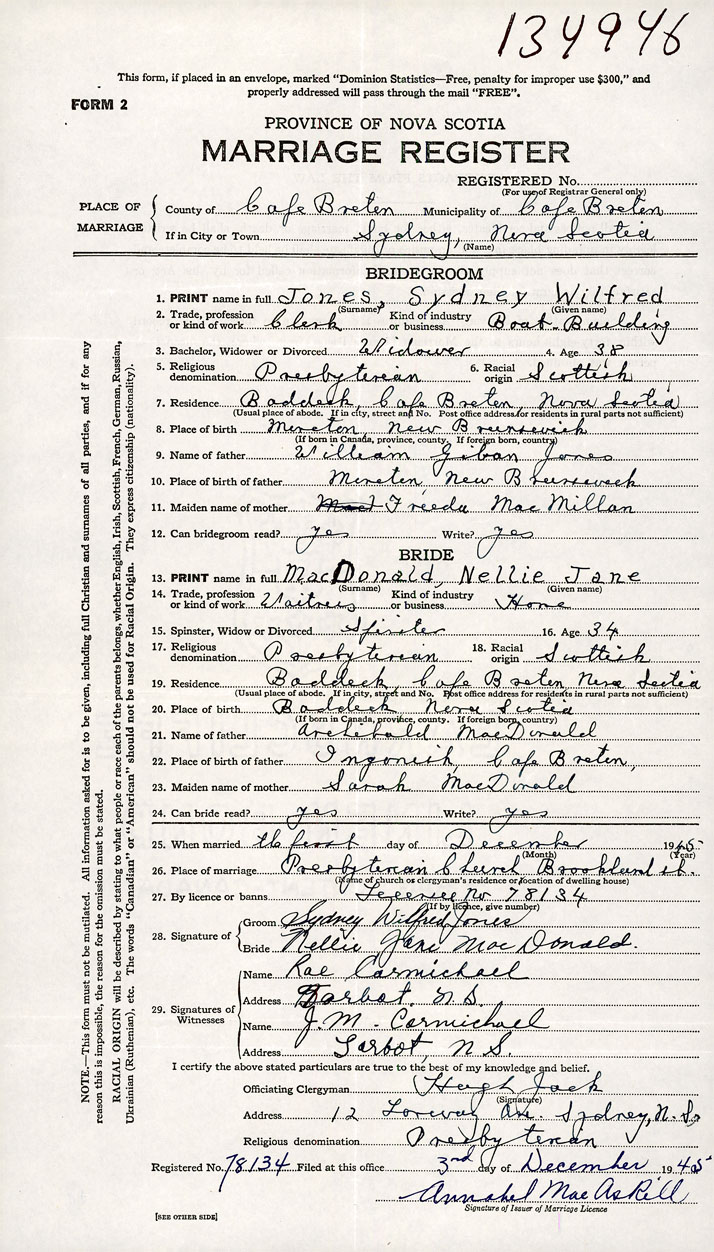 134946
This form, if placed in an envelope, marked “Dominion Statistics—Free, penalty for improper use $300,” and
properly addressed will pass through the mail “FREE”.
FORM 2
PROVINCE OF NOVA SCOTIA
MARRIAGE REGISTER
REGISTERED No.
(For use of Registrar General only)
PLACE OF MARRIAGE
County of Cape Breton Municipality of Cape Breton
If in City or Town Sydney, Nova Scotia
(Name)
BRIDEGROOM
1. PRINT name in full Jones, Sydney Wilfred
(Surname) (Given name)
2. Trade, profession or kind of work Clerk Kind of industry or business Boat-Building
3. Bachelor, Widower or Divorced Widower 4. Age 38
5. Religious denomination Presbyterian 6. Racial origin Scottish
7. Residence Baddeck, Cape Breton, Nova Scotia
(Usual place of abode. If in city, street and No. Post office address for residents in rural parts not sufficient)
8. Place of birth Moncton, New Brunswick
(If born in Canada, province, county. If foreign born, country)
9. Name of father William Jones
10. Place of birth of father Moncton, New Brunswick
11. Maiden name of mother Freeda MacMillan
12. Can bridegroom read? yes Write? yes
BRIDE
13. PRINT name in full MacDonald, Nellie Jane
(Surname) (Given name)
14. Trade, profession or kind of work Waitress Kind of industry or business Home
15. Spinster, Widow or Divorced Spinster 16. Age 34
17. Religious denomination Presbyterian 18. Racial origin Scottish
19. Residence Baddeck, Cape Breton Nova Scotia
(Usual place of abode. If in city, street and No. Post office address for residents in rural parts not sufficient)
20. Place of birth Baddeck Nova Scotia
(If born in Canada, province, county. If foreign born, country)
21. Name of father Archibald MacDonald
22. Place of birth of father Ingonish, Cape Breton,
23. Maiden name of mother Sarah MacDonald
24. Can bride read? yes Write? yes
25. When married the first day of December 1945
(Month) (Year)
26. Place of marriage Presbyterian Church Brookland st.
(Name of church or clergyman's residence or location of dwelling house)
27. By licence or banns License No 78134
(If by licence, give number)
28. Signature of
Groom Sydney Wilfred Jones
Bride Nellie Jane MacDonald.
29. Signatures of Witnesses
Name Rae Carmichael
Address Tarbot, N.S.
Name J. M. Carmichael
Address Tarbot, N.S.
I certify the above stated particulars are true to the best of my knowledge and belief.
Officiating Clergyman Hugh Jack
(Signature)
Address 12 Lorway Ave. Sydney, N.S.
Religious denomination Presbyterian
Registered No. 78134 Filed at this office 3rd day of December 1945
Annabel MacAskill
Signature of Issuer of Marriage Licence
[SEE OTHER SIDE]
NOTE.—This form must not be mutilated. All information asked for is to be given, including full Christian and surnames of all parties, and if for any
reason this is impossible, the reason for the omission must be stated.
RACIAL ORIGIN will be described by stating to what people or race each of the parents belongs, whether English, Irish, Scottish, French, German, Russian,
Ukrainian (Ruthenian), etc. The words “Canadian” or “American” should not be used for Racial Origin. They express citizenship (nationality).